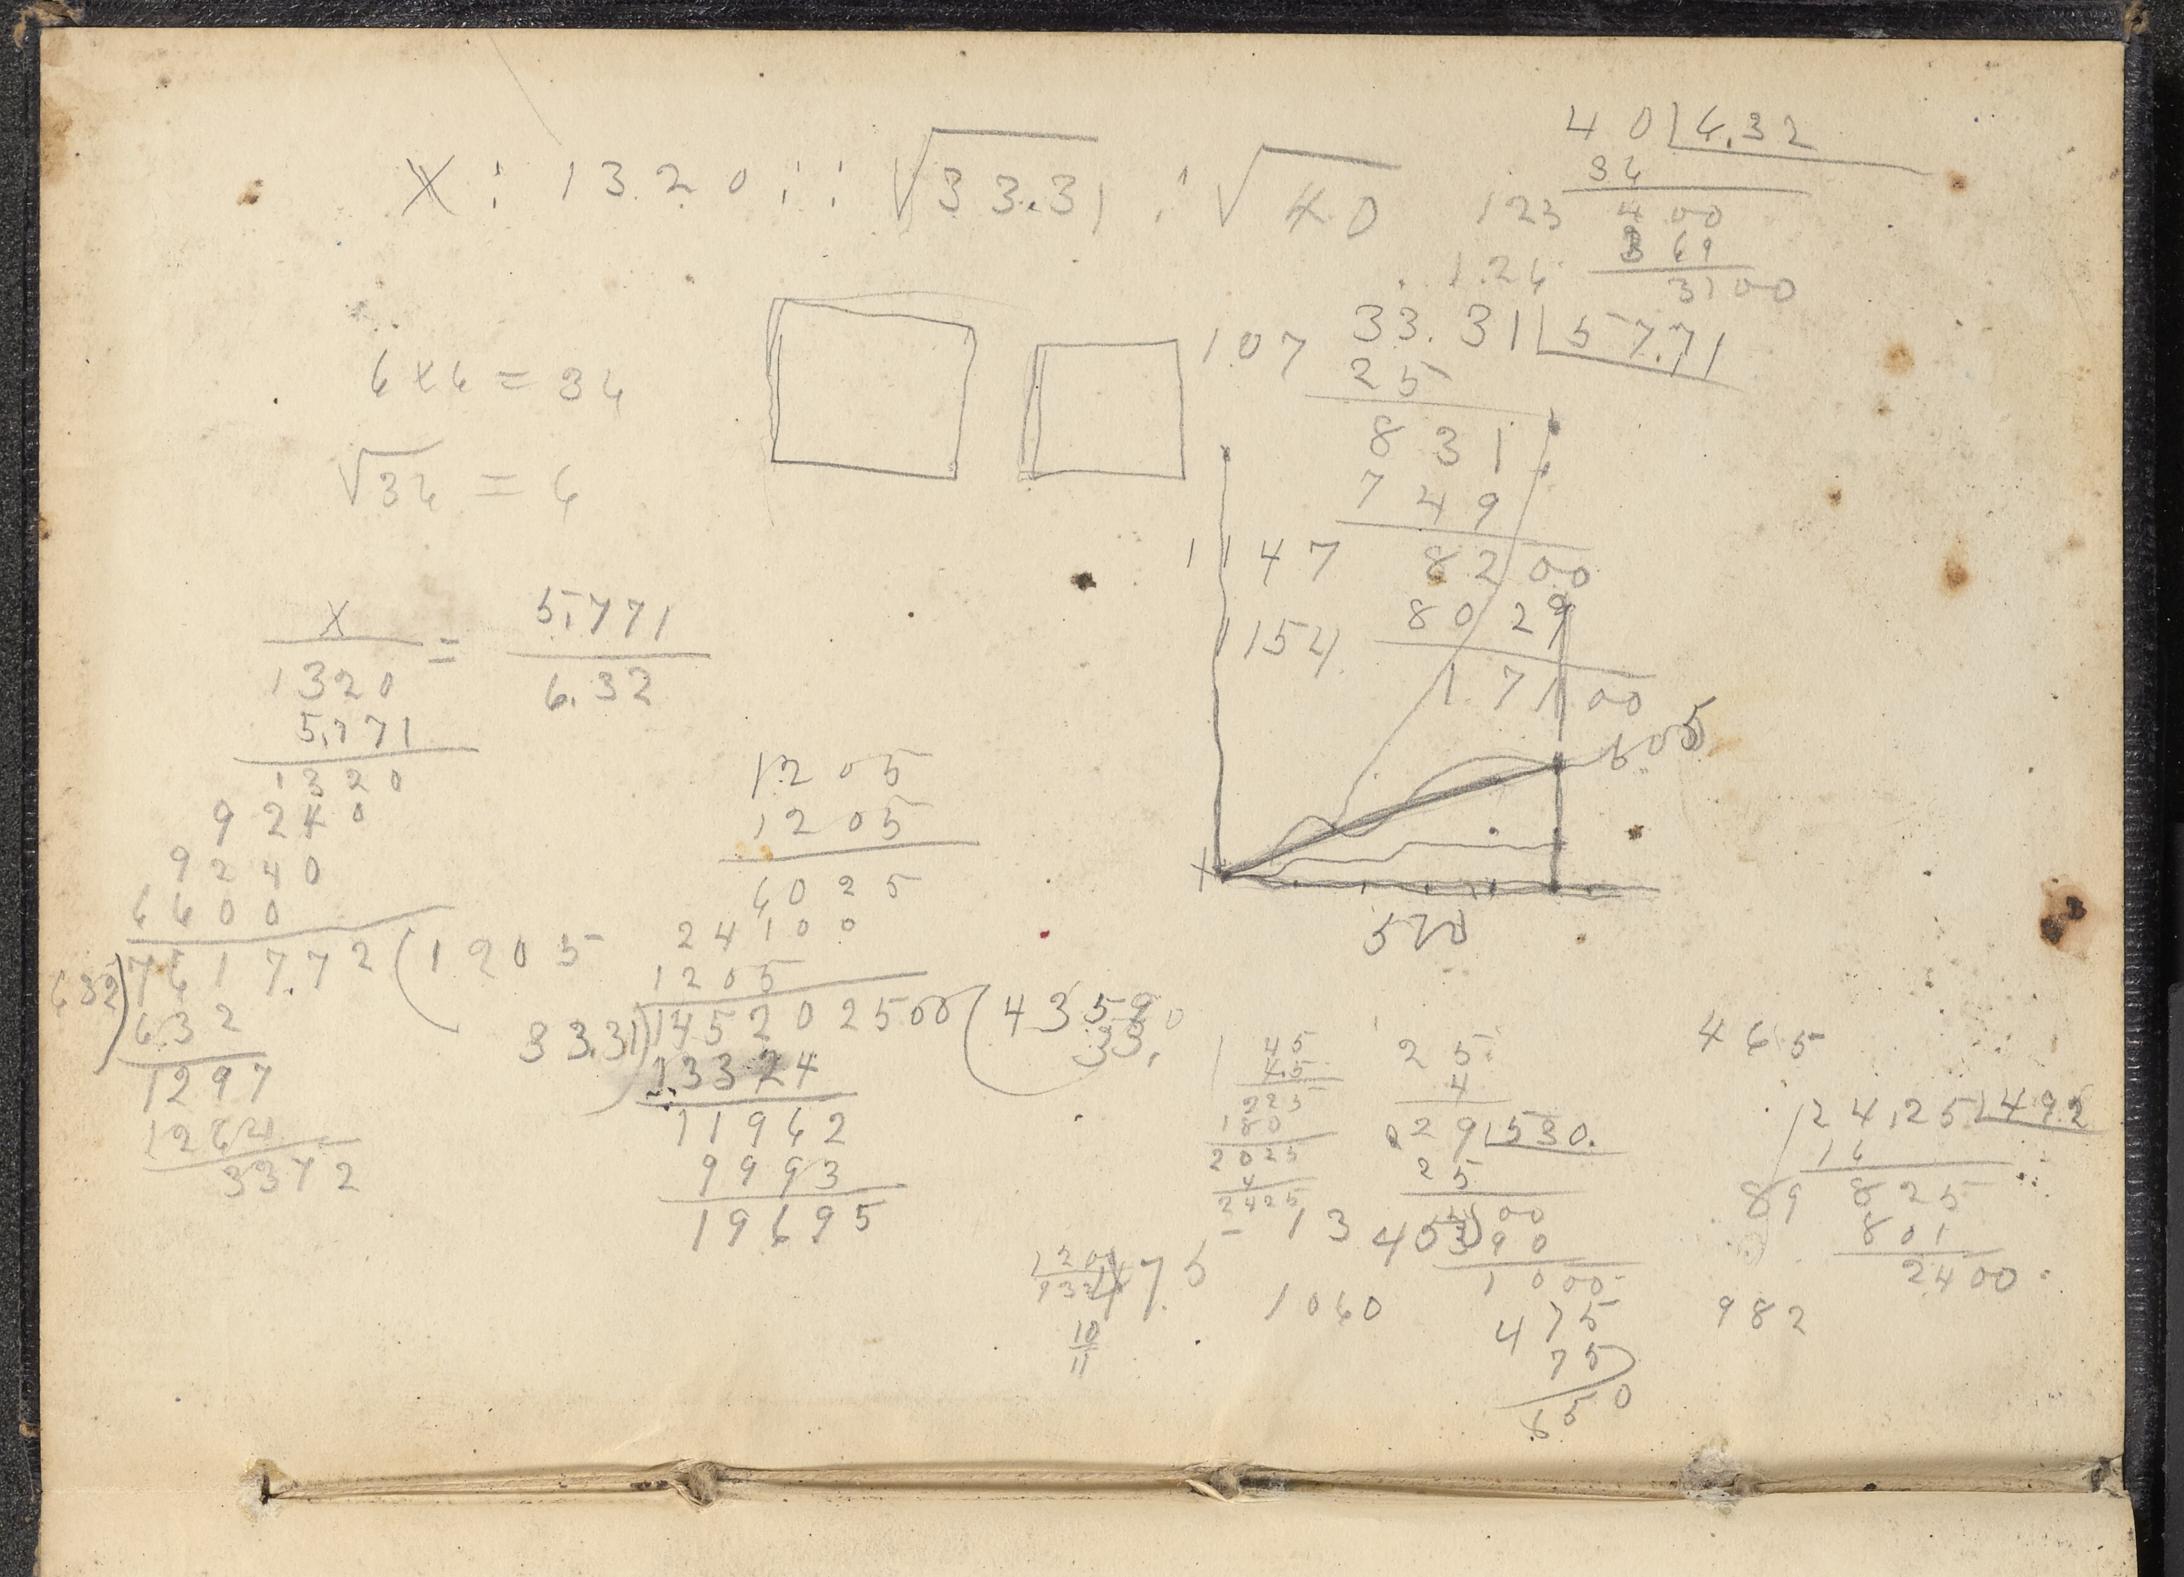 X : 1320 : : √33.31 : √40
40 | 6.32
36
123 400
369
1.26 3100
6 x 6 = 36
√36 = 6
107 33.31 | 57.71
25
831
749
1147 8200
8029
1154 17100
605
570
X = 5.771
1320 6.32
5.771
1320
9240
9240
6600
632 ) 7617.72 ( 1205
632
1297
1264
3372
1205
1205
6025
24100
1205
33.31 ) 145202500 ( 4359
33.
13324
11962
9993
19695
45
45
225
180
2025
4
2425
25
4
29 | 530.
25
400
390
1000
13
1060
475
10
11
475
75
650
465
24.25 | 492
16
89 825
801
2400
982